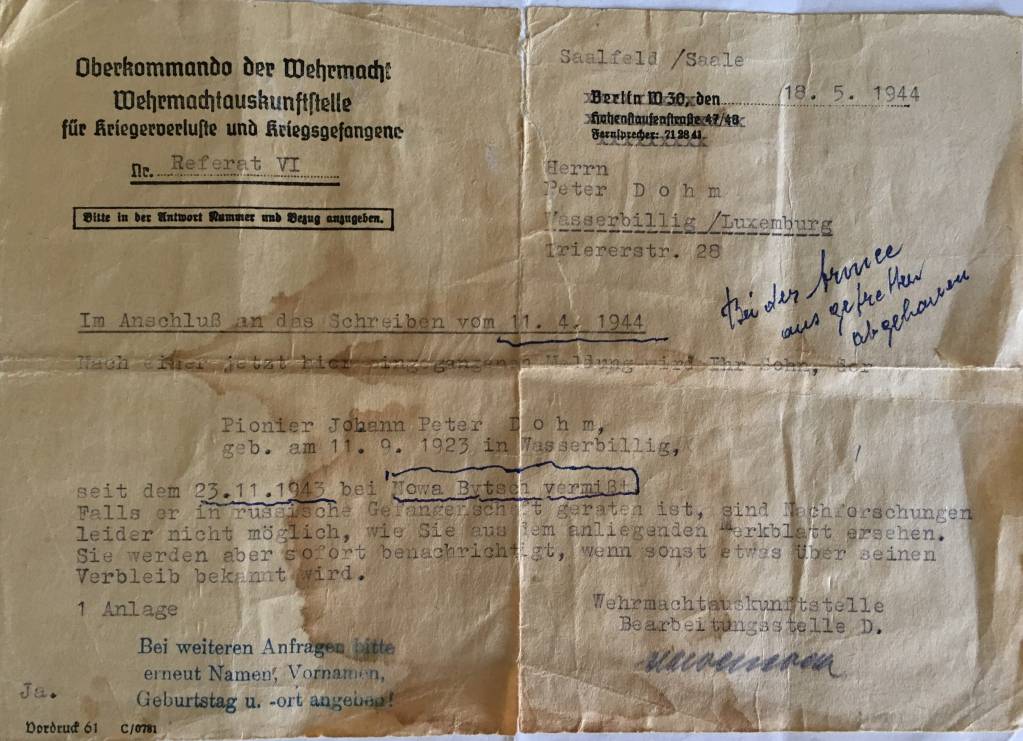 Oberkommando der Wehrmacht
Wehrmachtauskunftstelle
für Kriegerverluste und Kriegsgefangene
Nr. Referat VI
Bitte in der Antwort Nummer und Bezug anzugeben.
Saalfeld /Saale
Berlin W 30, den 18. 5. 1944
Hohenstaufenstraße 47/48
Fernsprecher: 71 28 41
Herrn
Peter D o h m
Wasserbillig /Luxemburg
Triererstr. 28
Bei der
abgehauen
Im Anschluß an das Schreiben vom 11. 4. 1944
Nach einer jetzt hier eingegangenen Meldung wird Ihr Sohn, der
Pionier Johann Peter D o h m,
geb. am 11. 9. 1923 in Wasserbillig,
seit dem 23.11.1943 bei Nowa Bytsch vermißt.
Falls er in russische Gefangenschaft geraten ist, sind Nachforschungen
leider nicht möglich, wie Sie aus dem anliegenden Merkblatt ersehen.
Sie werden aber sofort benachrichtigt, wenn sonst etwas über seinen
Verbleib bekannt wird.
1 Anlage
Wehrmachtauskunftstelle
Bearbeitungsstelle D.
Bei weiteren Anfragen bitte
erneut Namen, Vornamen,
Geburtstag u. -ort angeben!
Ja.
Vordruck 61 C/0781